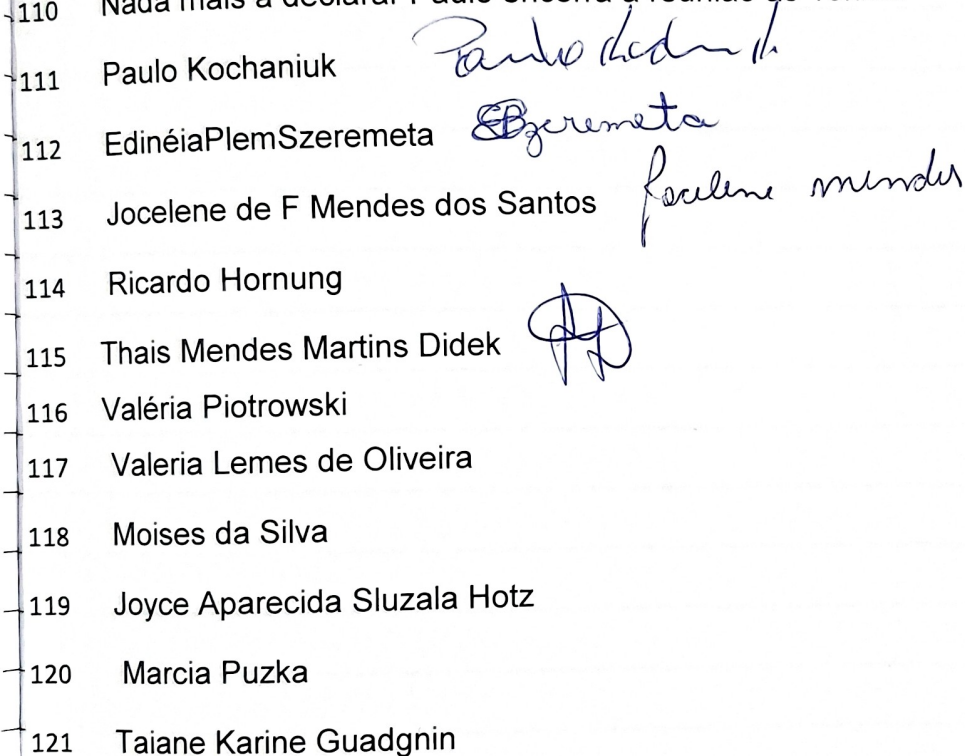 110 Nada mais a declarar Paulo encerra a reunião
111 Paulo Kochaniuk Paulo
112 EdinéiaPlemSzeremeta EBzeremeta
113 Jocelene de F Mendes dos Santos Jocelene mendes
114 Ricardo Hornung
115 Thais Mendes Martins Didek
116 Valéria Piotrowski
117 Valeria Lemes de Oliveira
118 Moises da Silva
119 Joyce Aparecida Sluzala Hotz
120 Marcia Puzka
121 Taiane Karine Guadgnin